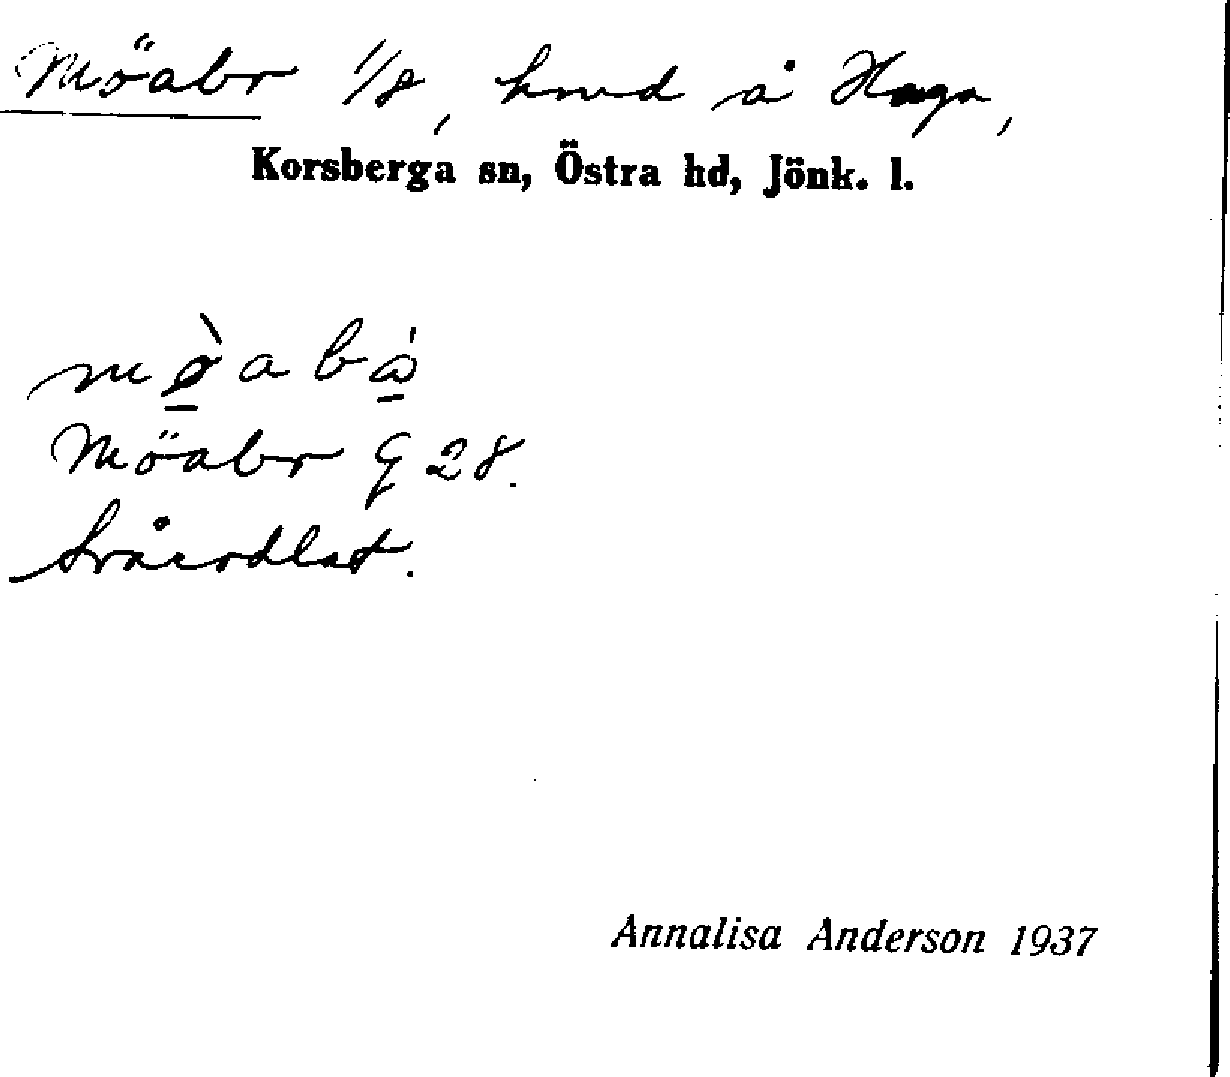 Möabr 1/8, hmd å Haga,
Korsberga sn, Östra hd, Jönk. l.
Möabr G 28.
Svårodlat.
Annalisa Anderson 1937